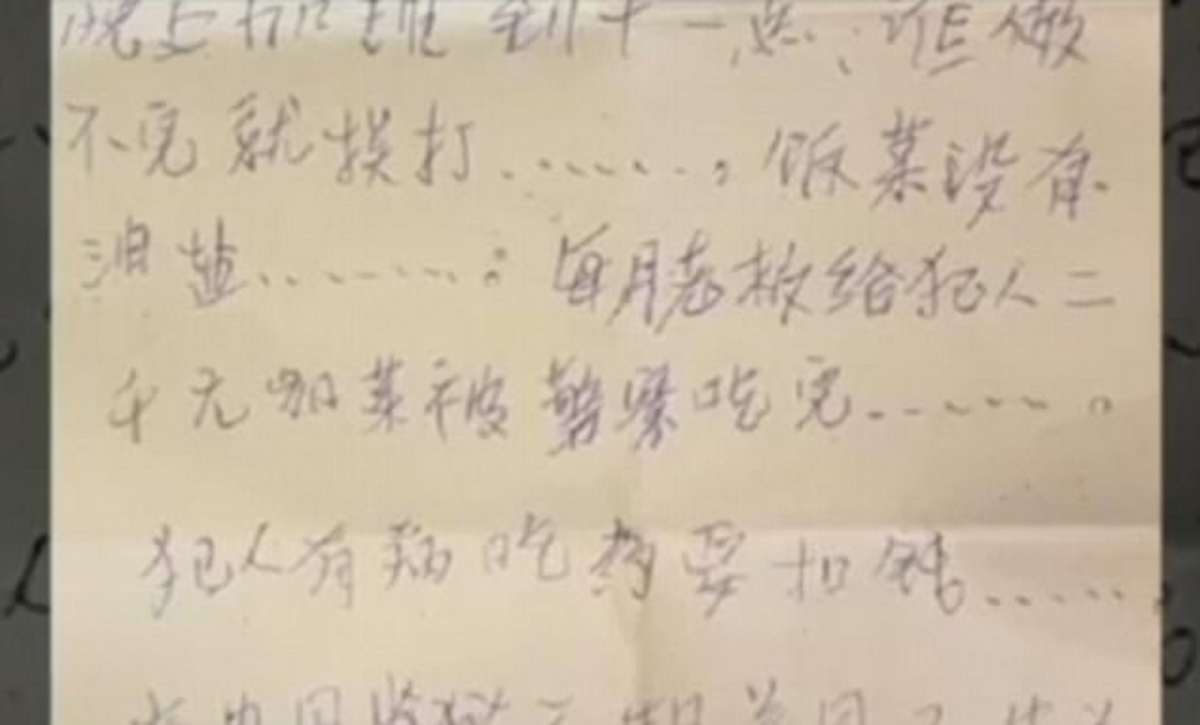 晚上加班到十一点，谁做
不完就挨打……，饭菜没有
油盐……。每月老板给犯人二
千元加菜被警察吃完……。
犯人有病吃药要扣钱……。